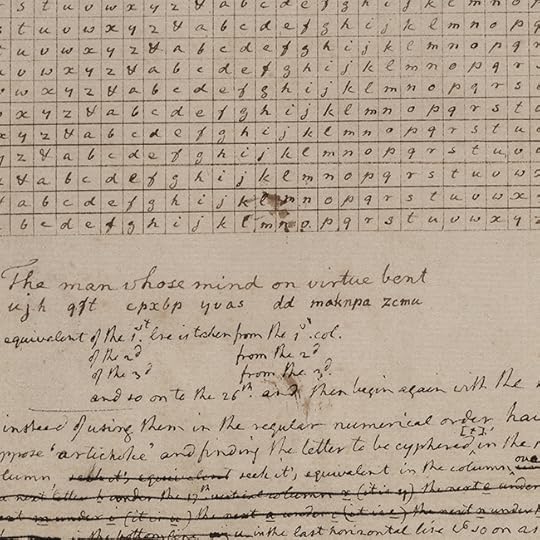 s t u v w x y z & a b c d e f g h i j k l m n o p
t u v w x y z & a b c d e f g h i j k l m n o p q
u v w x y z & a b c d e f g h i j k l m n o p q r
v w x y z & a b c d e f g h i j k l m n o p q r s
w x y z & a b c d e f g h i j k l m n o p q r s t
x y z & a b c d e f g h i j k l m n o p q r s t u
y z & a b c d e f g h i j k l m n o p q r s t u v
z & a b c d e f g h i j k l m n o p q r s t u v w
& a b c d e f g h i j k l m n o p q r s t u v w x
a b c d e f g h i j k l m n o p q r s t u v w x y
b c d e f g h i j k l m n o p q r s t u v w x y z
The man whose mind on virtue bent
ujh qft cpxbp yvas dd maknpa zcmu
equivalent of the 1st line is taken from the 1st col.
of the 2d from the 2d
of the 3d from the 3d.
and so on to the 26th. and then begin again with the
instead of using them in the regular numerical order,
'artichoke' and finding the letter to be cyphered [t], in the
seek it's equivalent seek it's, equivalent in the column,
next letter h under the 17th vertical column x (it is y) the next e under
m under i (it is u) the next a under c (it is e) the next n under
the bottom line in the last horizontal line & so on as